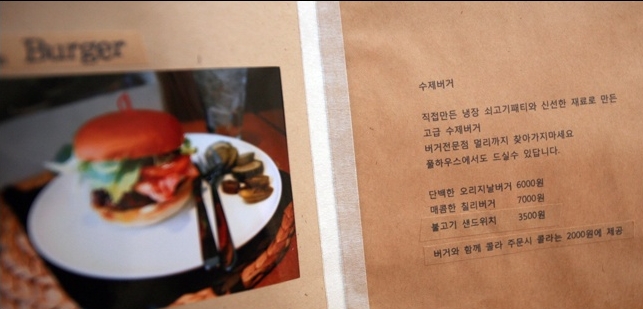 Burger
수제버거
직접만든 냉장 쇠고기패티와 신선한 재료로 만든
고급 수제버거
버거전문점 멀리까지 찾아가지마세요
풀하우스에서도 드실수 있답니다.
담백한 오리지날버거 6000원
매콤한 칠리버거 7000원
불고기 샌드위치 3500원
버거와 함께 콜라 주문시 콜라는 2000원에 제공